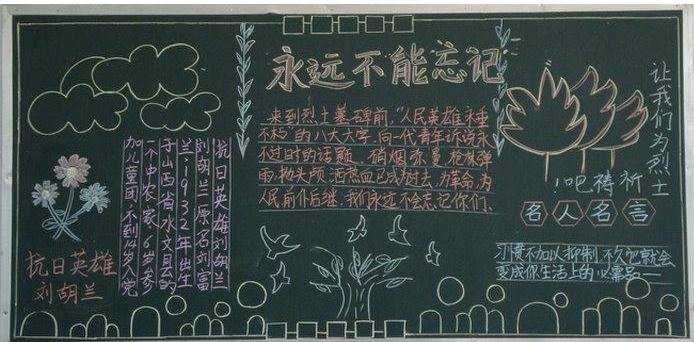 永远不能忘记
抗日英雄刘胡兰
刘胡兰,原名刘富
兰,1932年出生
于山西省水文县的
一个中农家,6岁参
加儿童团,不到14岁入党
抗日英雄
刘胡兰
来到烈士墓碑前,"人民英雄永垂
不朽"的八大大字,向一代青年诉说永
不过时的话题。硝烟弥漫,枪林弹
雨,抛头颅,洒热血已成过去,为革命,为
人民前仆后继,我们永远不会忘记你们。
让我们为烈士
祈祷吧!
名人名言
不加以抑制,不久它就会
变成你生活上的必需品——